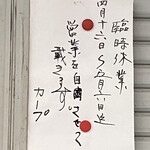 臨時休業
四月十六日〜五月六日迄
営業を自粛させて
戴きます
カープ